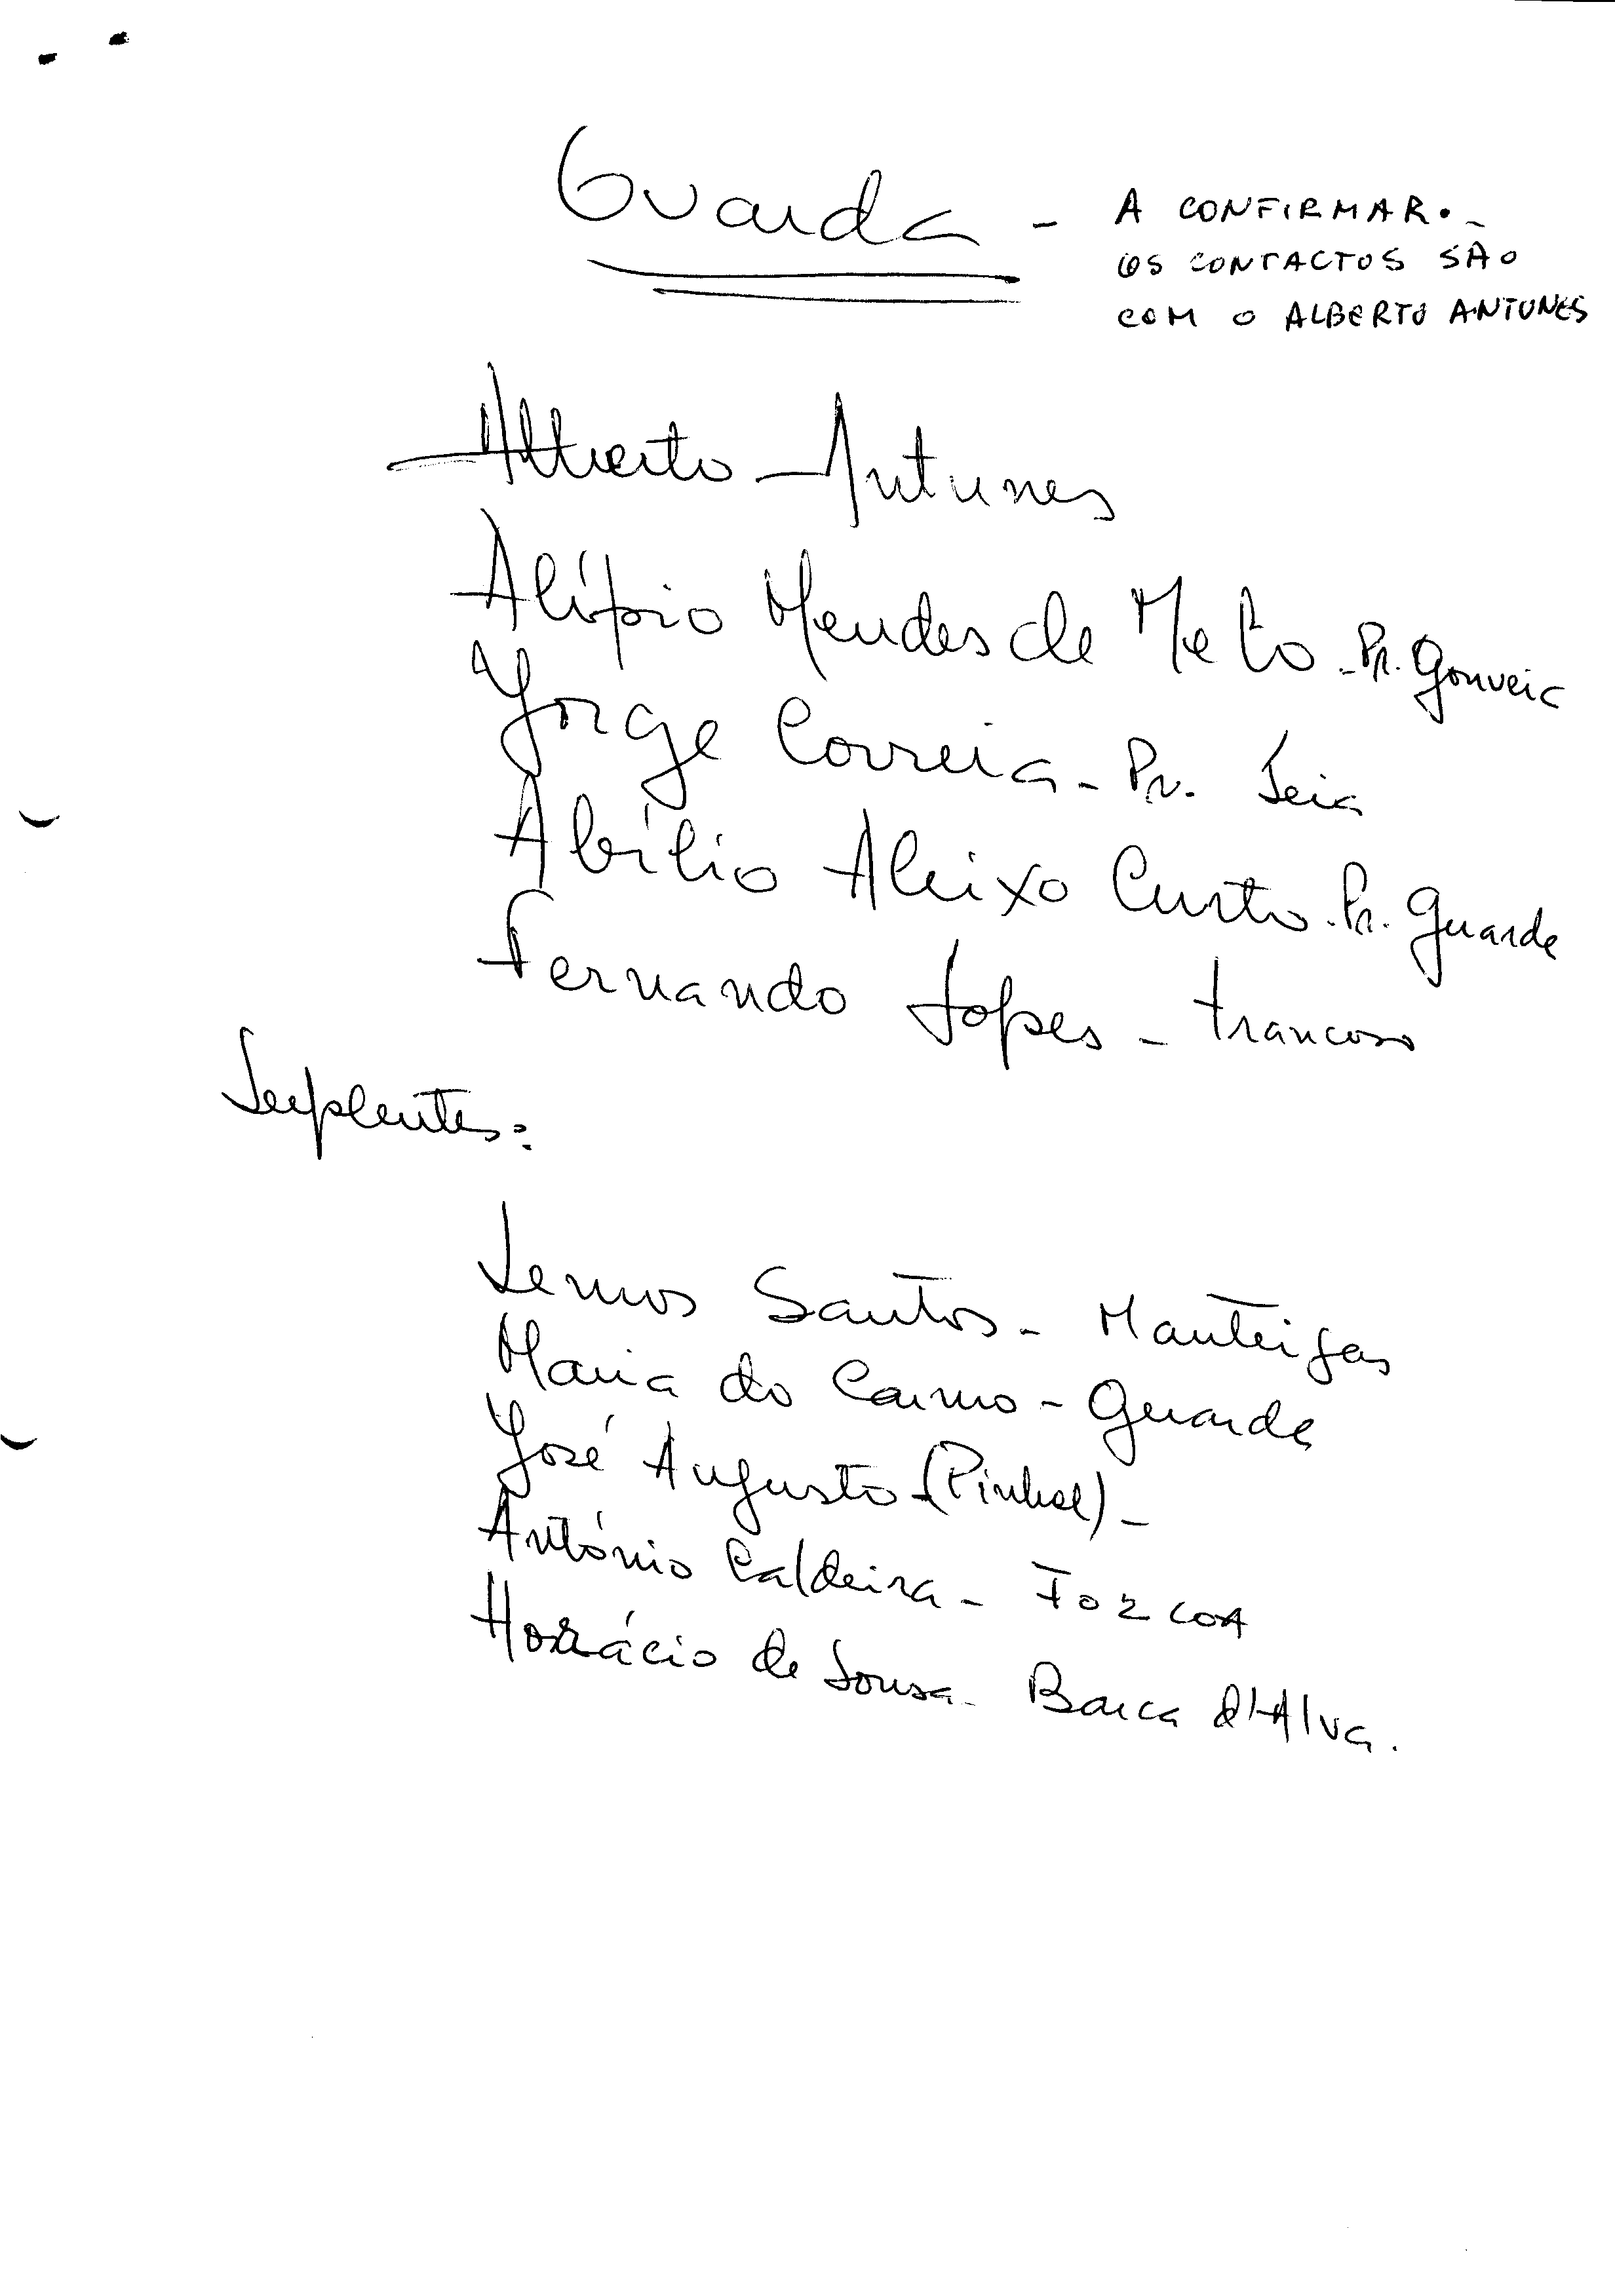 Guarda - A CONFIRMAR. -
OS CONTACTOS SÃO
COM O ALBERTO ANTUNES
Alberto Antunes
Alípio Mendes de Melo - Pr. Gouveia
Jorge Correia - Pr. Seia
Abílio Aleixo Curto - Pr. Guarda
Fernando Lopes - Trancoso
Suplentes:
Lemos Santos - Manteigas
Maria do Carmo - Guarda
José Augusto (Pinhel) -
António Caldeira - FOZ COA
Horácio de Sousa - Barca d'Alva.